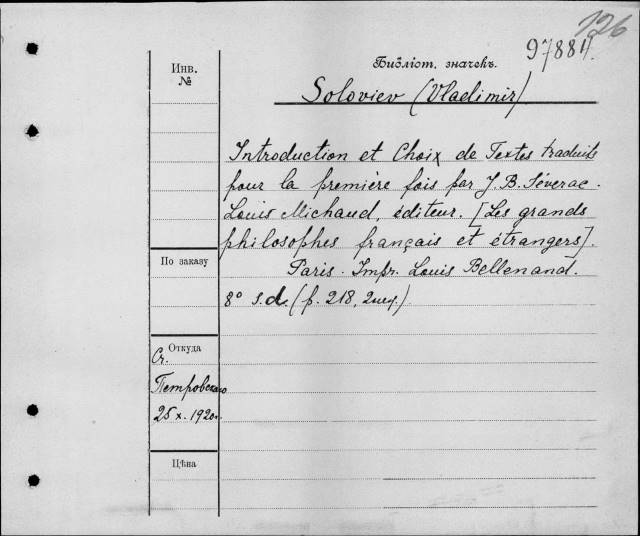 126
97884
Библіот. значекъ.
Soloviev (Vladimir)
Инв.
№
Introduction et Choix de Textes traduits
pour la première fois par J. B. Séverac.
Louis Michaud, éditeur. [Les grands
philosophes français et étrangers].
Paris. Impr. Louis Bellenand.
8° s.d. (p. 218,
По заказу
Откуда
Ст.
Петровского
25 x. 1920.
Цѣна